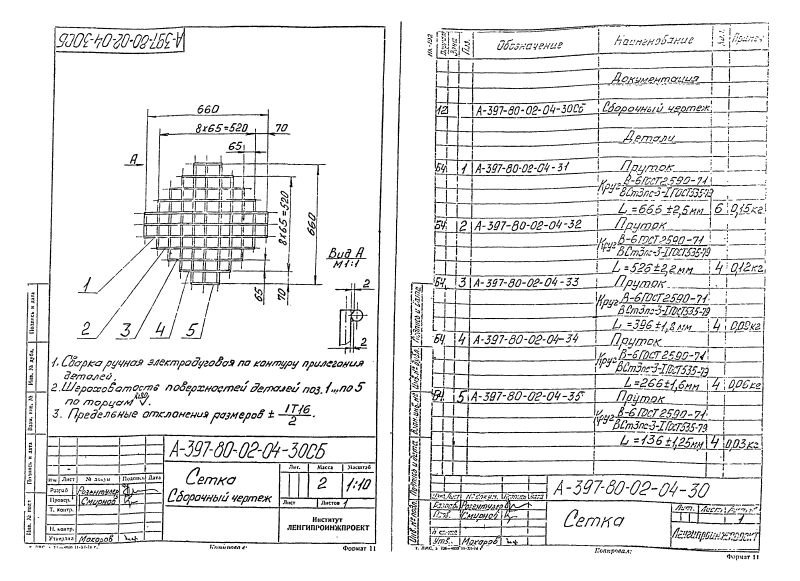 А-397-80-02-04-30СБ
660
8х65=520
70
65
А
8х65=520
660
65
70
Вид А
М1:1
2
2
1
2
3
4
5
1. Сварка ручная электродуговая по контуру прилегания
деталей.
2. Шероховатость поверхностей деталей поз. 1...,по 5
по торцам
3. Предельные отклонения размеров ± IT16/2.
Подпись и дата
Инв. № дубл.
Взам. инв. №
Подпись и дата
Инв. № посл
А-397-80-02-04-30СБ
Изм Лист № докум Подпись Дата
Разраб Розентулер
Провер. Смирнов
Т. контр.
Н. контр.
Утвердил Макаров
Сетка
Сборочный чертеж
Лит. Масса Масштаб
2 1:10
Лист Листов 1
Институт
ЛЕНГИПРОИНЖПРОЕКТ
Копировал
Формат 11
Формат Зона Поз. Обозначение Наименование Кол. Примеч
Документация
12 А-397-80-02-04-30СБ Сборочный чертеж
Детали
БЧ 1 А-397-80-02-04-31 Пруток
Круг В-6 ГОСТ 2590-71
ВСт3пс-3-I ГОСТ 535-79
L=666±2,5мм 6 0,15кг
БЧ 2 А-397-80-02-04-32 Пруток
Круг В-6 ГОСТ 2590-71
ВСт3пс-3-I ГОСТ 535-79
L=526±2,2мм 4 0,12кг
БЧ 3 А-397-80-02-04-33 Пруток
Круг В-6 ГОСТ 2590-71
ВСт3пс-3-I ГОСТ 535-79
L=396±1,8мм 4 0,09кг
БЧ 4 А-397-80-02-04-34 Пруток
Круг В-6 ГОСТ 2590-71
ВСт3пс-3-I ГОСТ 535-79
L=266±1,6мм 4 0,06кг
БЧ 5 А-397-80-02-04-35 Пруток
Круг В-6 ГОСТ 2590-71
ВСт3пс-3-I ГОСТ 535-79
L=136±1,25мм 4 0,03кг
Подпись и дата
Инв. № дубл.
Взам. инв. №
Подпись и дата
Инв. № подл.
А-397-80-02-04-30
Изм. Лист № докум. Подпись Дата
Разраб. Розентулер
Пров. Смирнов
Н.контр.
Утв. Макаров
Сетка
Лит. Лист Листов
1
Ленгипроинжпроект
Копировал:
Формат 11